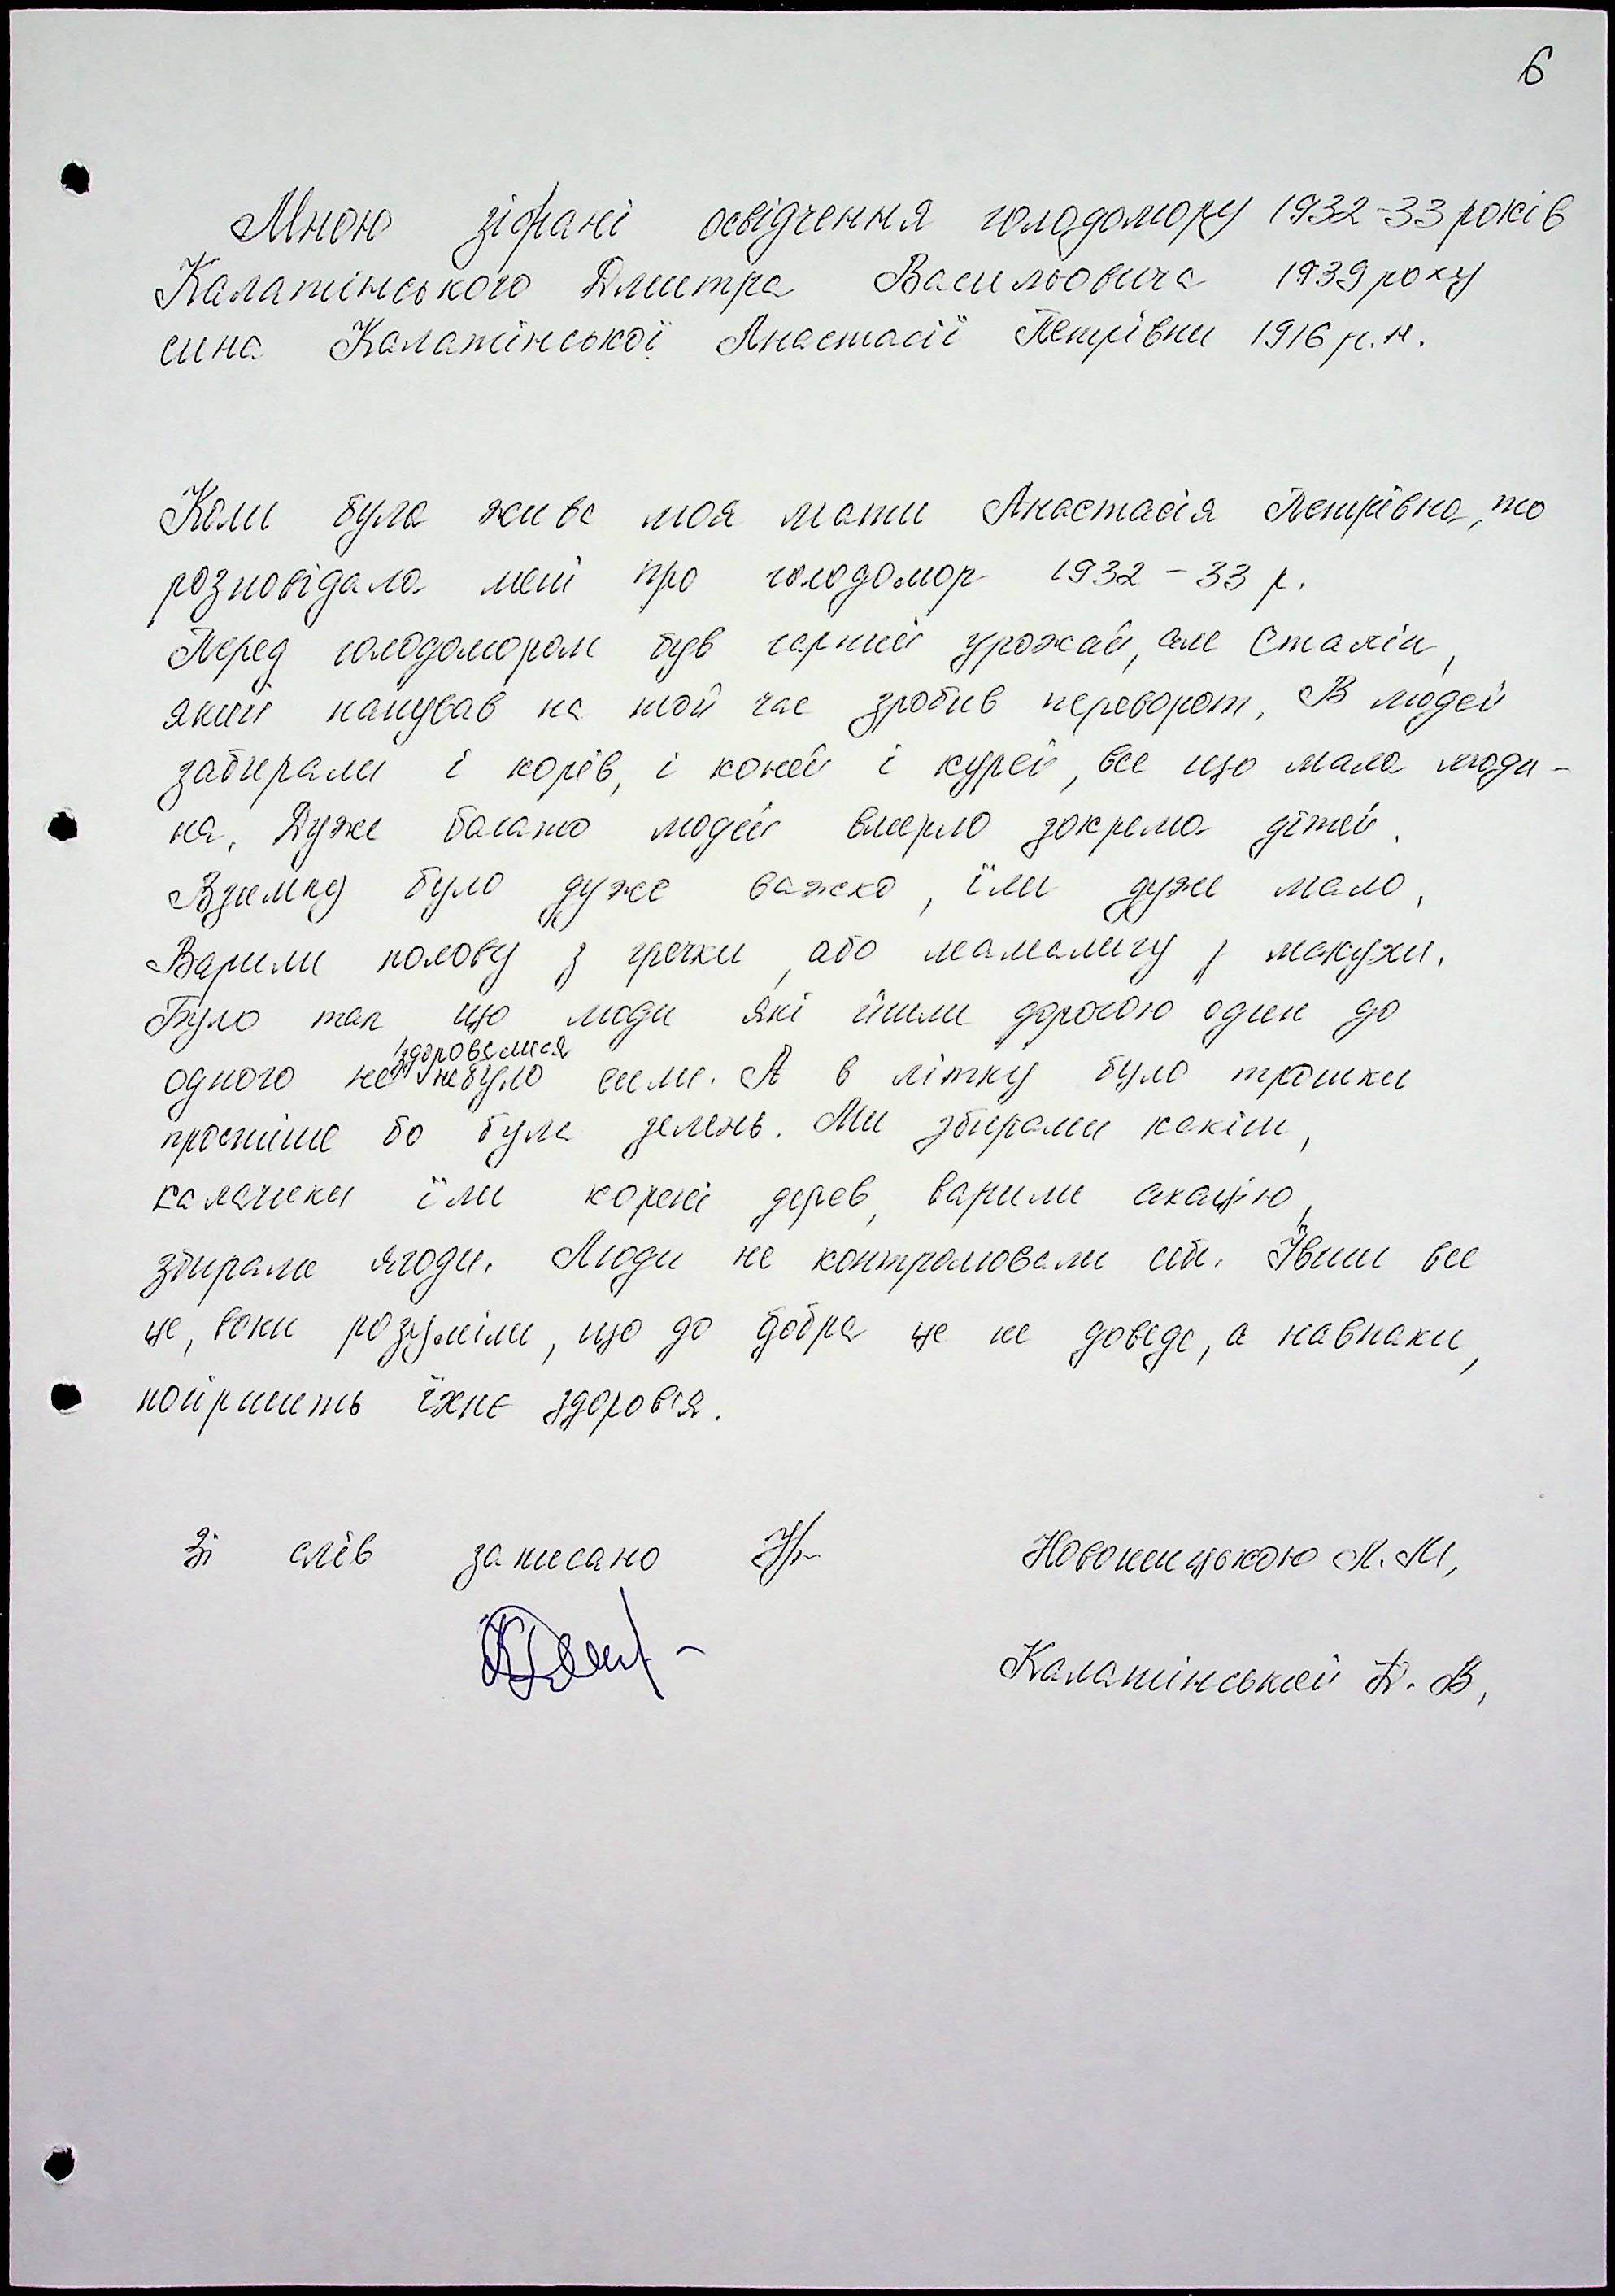 6
Мною зібрані освідчення голодомору 1932-33 років
Калатінського Дмитра Васильовича 1939 року
сина Калатінської Анастасії Петрівни 1916 р.н.
Коли була жива моя мати Анастасія Петрівна, то
розповідала мені про голодомор 1932-33 р.
Перед голодомором був гарний урожай, але Сталін,
який панував на той час зробив переворот. В людей
забирали і корів, і коней і курей, все що мала люди-
на. Дуже багато людей вмерло зокрема дітей.
Взимку було дуже важко, їли дуже мало.
Варили полову з гречки, або мамалигу з макухи.
Було так що люди які йшли дорогою один до
здоровалися
одного не небуло сили. А в літку було трошки
простіше бо була зелень. Ми збирали
калачики їли корені дерев, варили акацію,
збирали ягоди. Люди не контролювали себе. Ївши все
це, вони розуміли, що до добра це не доведе, а навпаки,
погіршить їхнє здоров'я.
Зі слів записано Новошицькою Л. М,
Калатінський Д. В,